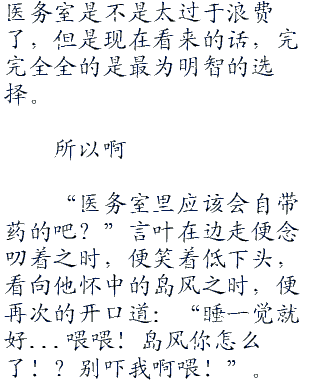 医务室是不是太过于浪费
了，但是现在看来的话，完
完全全的是最为明智的选
择。
所以啊
“医务室里应该会自带
药的吧？”言叶在边走便念
叨着之时，便笑着低下头，
看向他怀中的岛风之时，便
再次的开口道：“睡一觉就
好...喂喂！岛风你怎么
了！？别吓我啊喂！”。